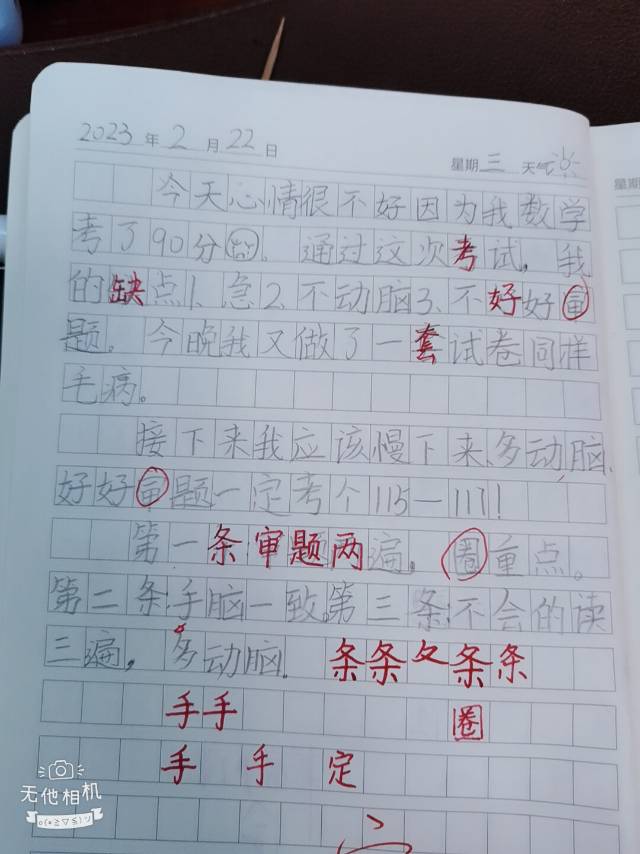 2023年2月22日 星期三 天气
今天心情很不好因为我数学
考了90分。通过这次考试，我
的缺点1、急2、不动脑3、不好好审
题。今晚我又做了一套试卷同样
毛病。
接下来我应该慢下来、多动脑、
好好审题一定考个115—117!
第一条审题两遍，圈重点。
第二条手脑一致。第三条不会的读
三遍，多动脑。条条夂条条
手手 圈
手 手 定
无他相机